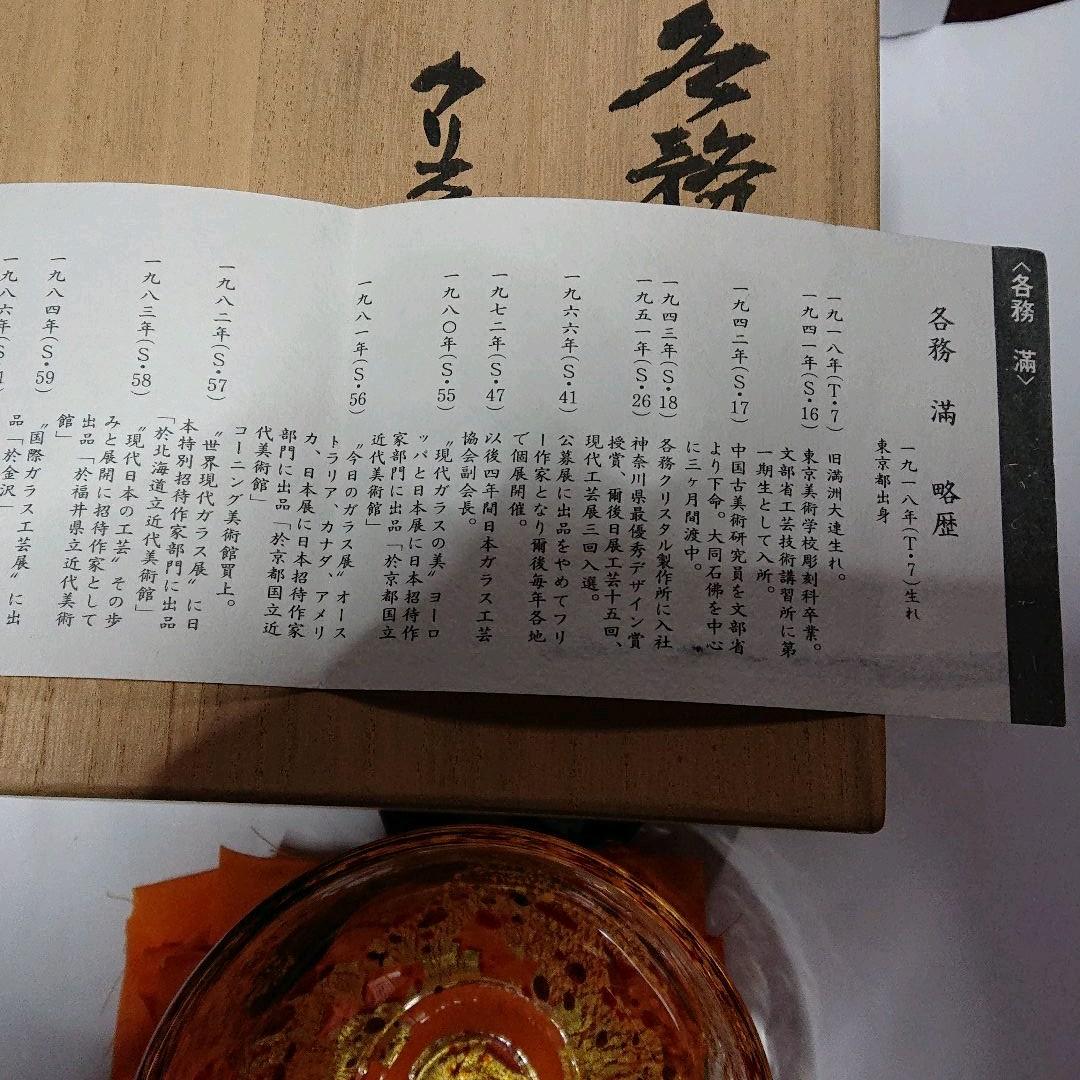 各務
〈各務 満〉
各務 満 略歴
一九一八年(T・7)生れ
東京都出身
一九一八年(T・7) 旧満洲大連生れ。
一九四一年(S・16) 東京美術学校彫刻科卒業。
文部省工芸技術講習所に第
一期生として入所。
一九四二年(S・17) 中国古美術研究員を文部省
より下命。大同石佛を中心
に三ヶ月間渡中。
一九四三年(S・18) 各務クリスタル製作所に入社
一九五一年(S・26) 神奈川県最優秀デザイン賞
授賞、爾後日展工芸十五回、
現代工芸展三回入選。
一九六六年(S・41) 公募展に出品をやめてフリ
ー作家となり爾後毎年各地
で個展開催。
一九七二年(S・47) 以後四年間日本ガラス工芸
協会副会長。
一九八〇年(S・55) “現代ガラスの美”ヨーロ
ッパと日本展に日本招待作
家部門に出品「於京都国立
近代美術館」
一九八一年(S・56) “今日のガラス展”オース
トラリア、カナダ、アメリ
カ、日本展に日本招待作家
部門に出品「於京都国立近
代美術館」
コーニング美術館買上。
一九八二年(S・57) “世界現代ガラス展”に日
本特別招待作家部門に出品
「於北海道立近代美術館」
一九八三年(S・58) “現代日本の工芸”その歩
みと展開に招待作家として
出品「於福井県立近代美術
館」
一九八四年(S・59) “国際ガラス工芸展”に出
品「於金沢」
一九八六年(S